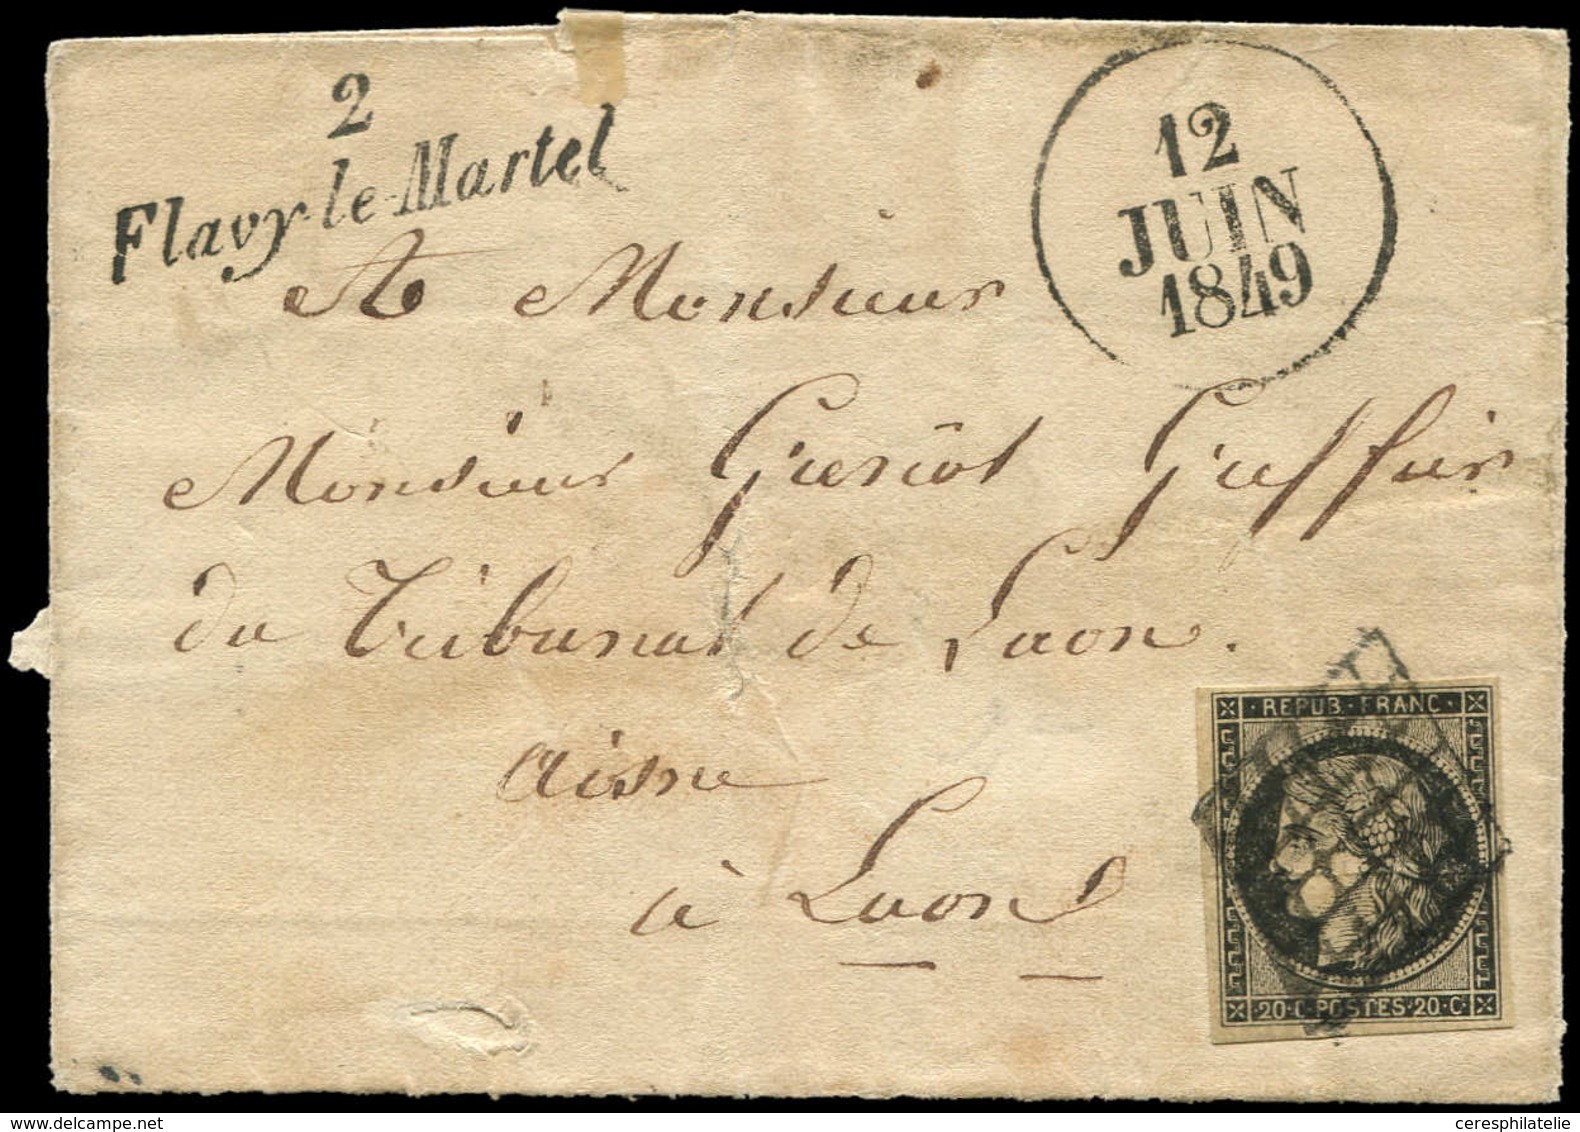 2
Flavy-le-Martel
12
JUIN
1849
A Monsieur
Monsieur Gueriot Gueffier
du Tribunal de Laon.
aisne
à Laon
REPUB·FRANC·
20·C·POSTES·20·C·
www.delcampe.net
ceresphilatelie